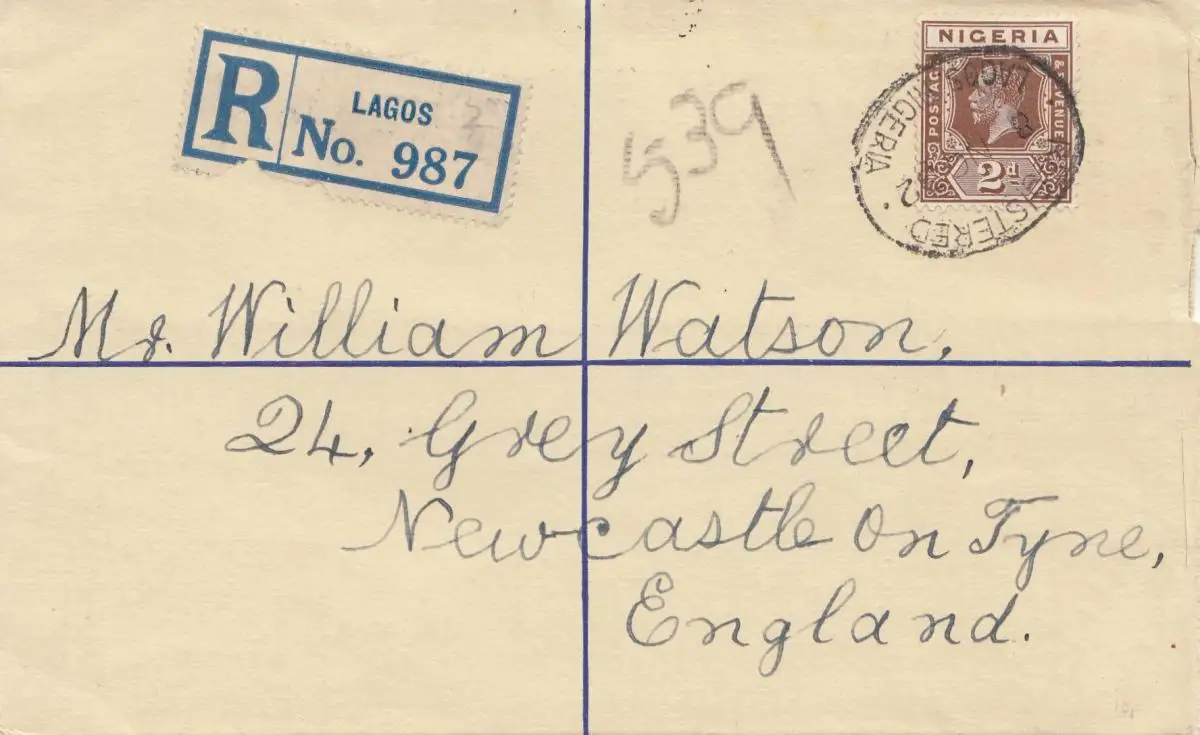 R
LAGOS
No. 987
539
NIGERIA
POSTAGE & REVENUE
2d
REGISTERED
NIGERIA
Mr. William Watson,
24, Grey Street,
Newcastle on Tyne,
England.